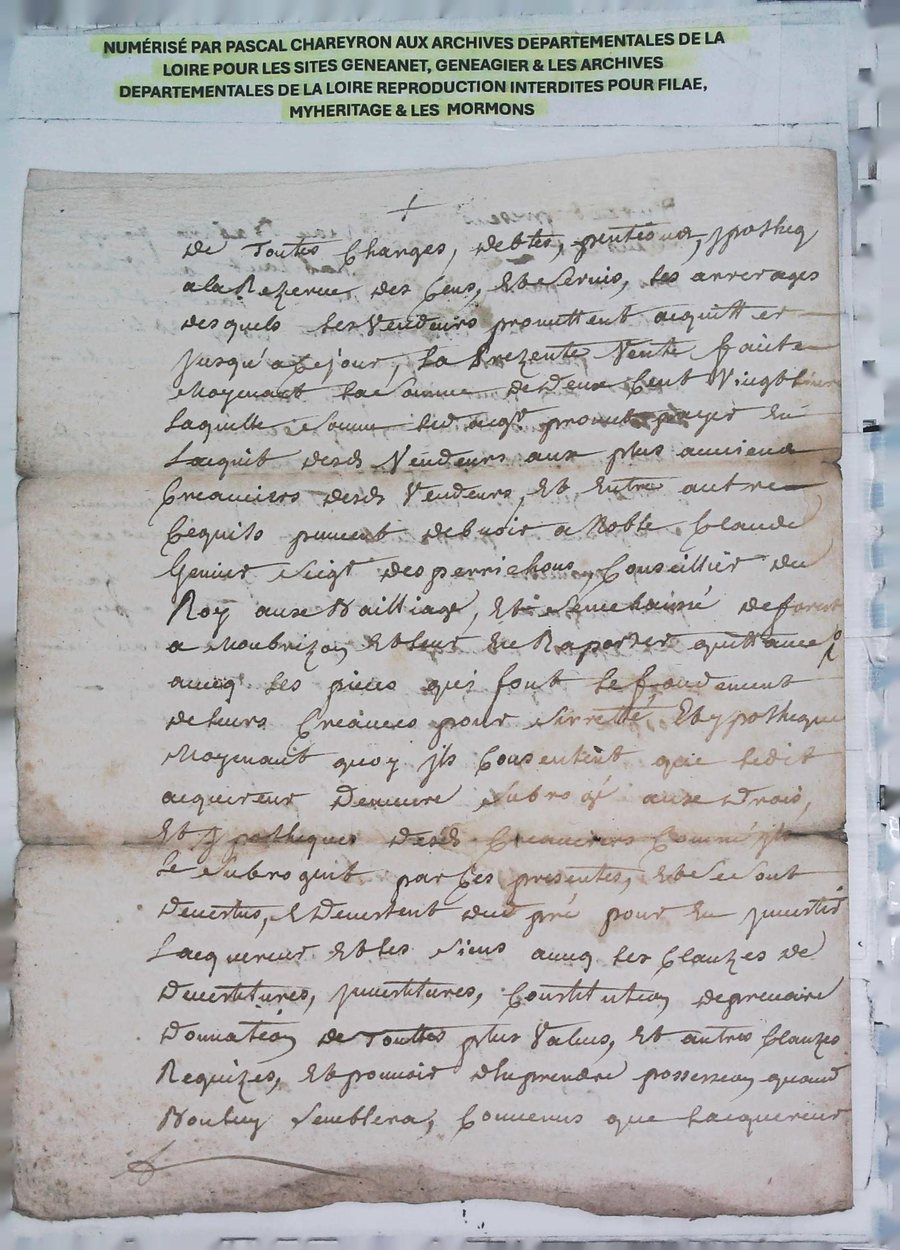 NUMÉRISÉ PAR PASCAL CHAREYRON AUX ARCHIVES DEPARTEMENTALES DE LA
LOIRE POUR LES SITES GENEANET, GENEAGIER & LES ARCHIVES
DEPARTEMENTALES DE LA LOIRE REPRODUCTION INTERDITES POUR FILAE,
MYHERITAGE & LES MORMONS
de Toutes Charges, debtes, pentions, ypotheq
a la Rezerve des Cens, Et Servis, les arrerages
desquels les Vendeurs promettent acquitter
Jusqu'a Ce jour, La Prezente Vente faite
Moyenant la Somme de deux Cent Vingt livres
Laquelle Somme led acqr promet payer En
Lacquit desds Vendeurs aux plus anciens
Creanciers desds Vendeurs, Et Entre autre
Ce quils peuvent debvoir a Noble Claude
Genier Seigr des perrichons, Conseillier du
Roy aux Bailliage, Et Senechaussé de forest
a Monbrizon Et leur En Raporter quittance
avecq les pieces qui font le fondement
de leurs Creances pour Surretté, Et ypotheque
Moyenant quoy jls Consentent que ledit
acquereur Demeure Subrogé aux Drois,
Et ypotheques desds Creanciers Comme jls
Le Subrogent par Ces presentes, Et Se Sont
Devertus, Et Devertent dud pré pour En jnvertir
Lacquereur Et les Siens avecq les Clauzes de
Devertitures, jnvertitures, Constitution de precaire
Donnation de Touttes plus Values, Et autres Clauzes
Requizes, Et pouvoir d'En prendre possession quand
Bon luy Semblera, Convenus que Lacquereur